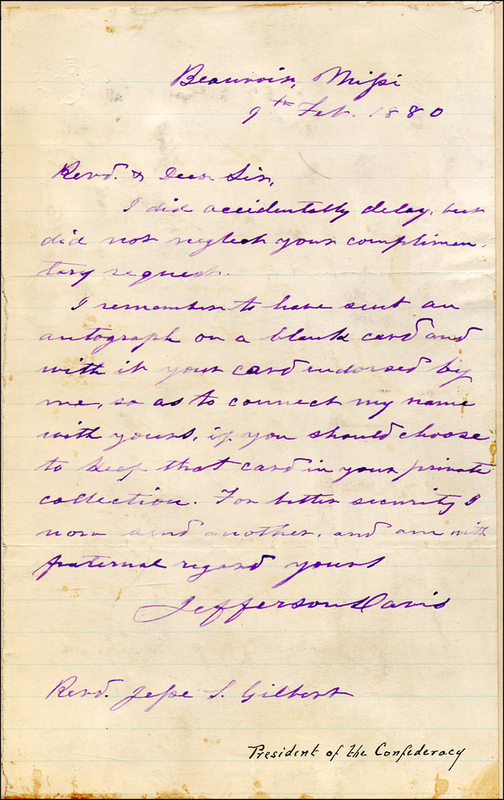 Beauvoir, Missi
9th Feb. 1880
Revd. & Dear Sir,
I did accidentally delay, but
did not neglect your complimen-
tary request.
I remember to have sent an
autograph on a blank card and
with it your card endorsed by
me, so as to connect my name
with yours, if you should choose
to keep that card in your private
collection. For better security I
now send another, and am with
fraternal regard yours
Jefferson Davis
Revd. Jesse S. Gilbert
President of the Confederacy